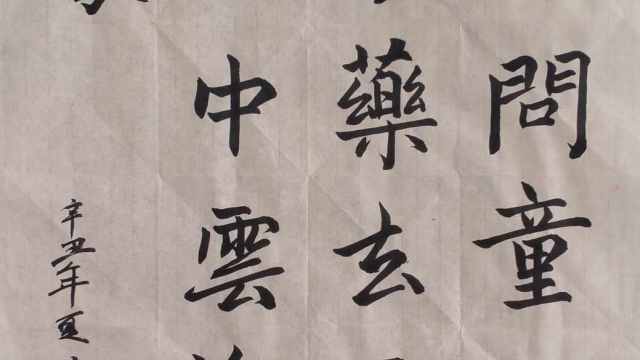 問童
藥去
中雲
辛丑年夏